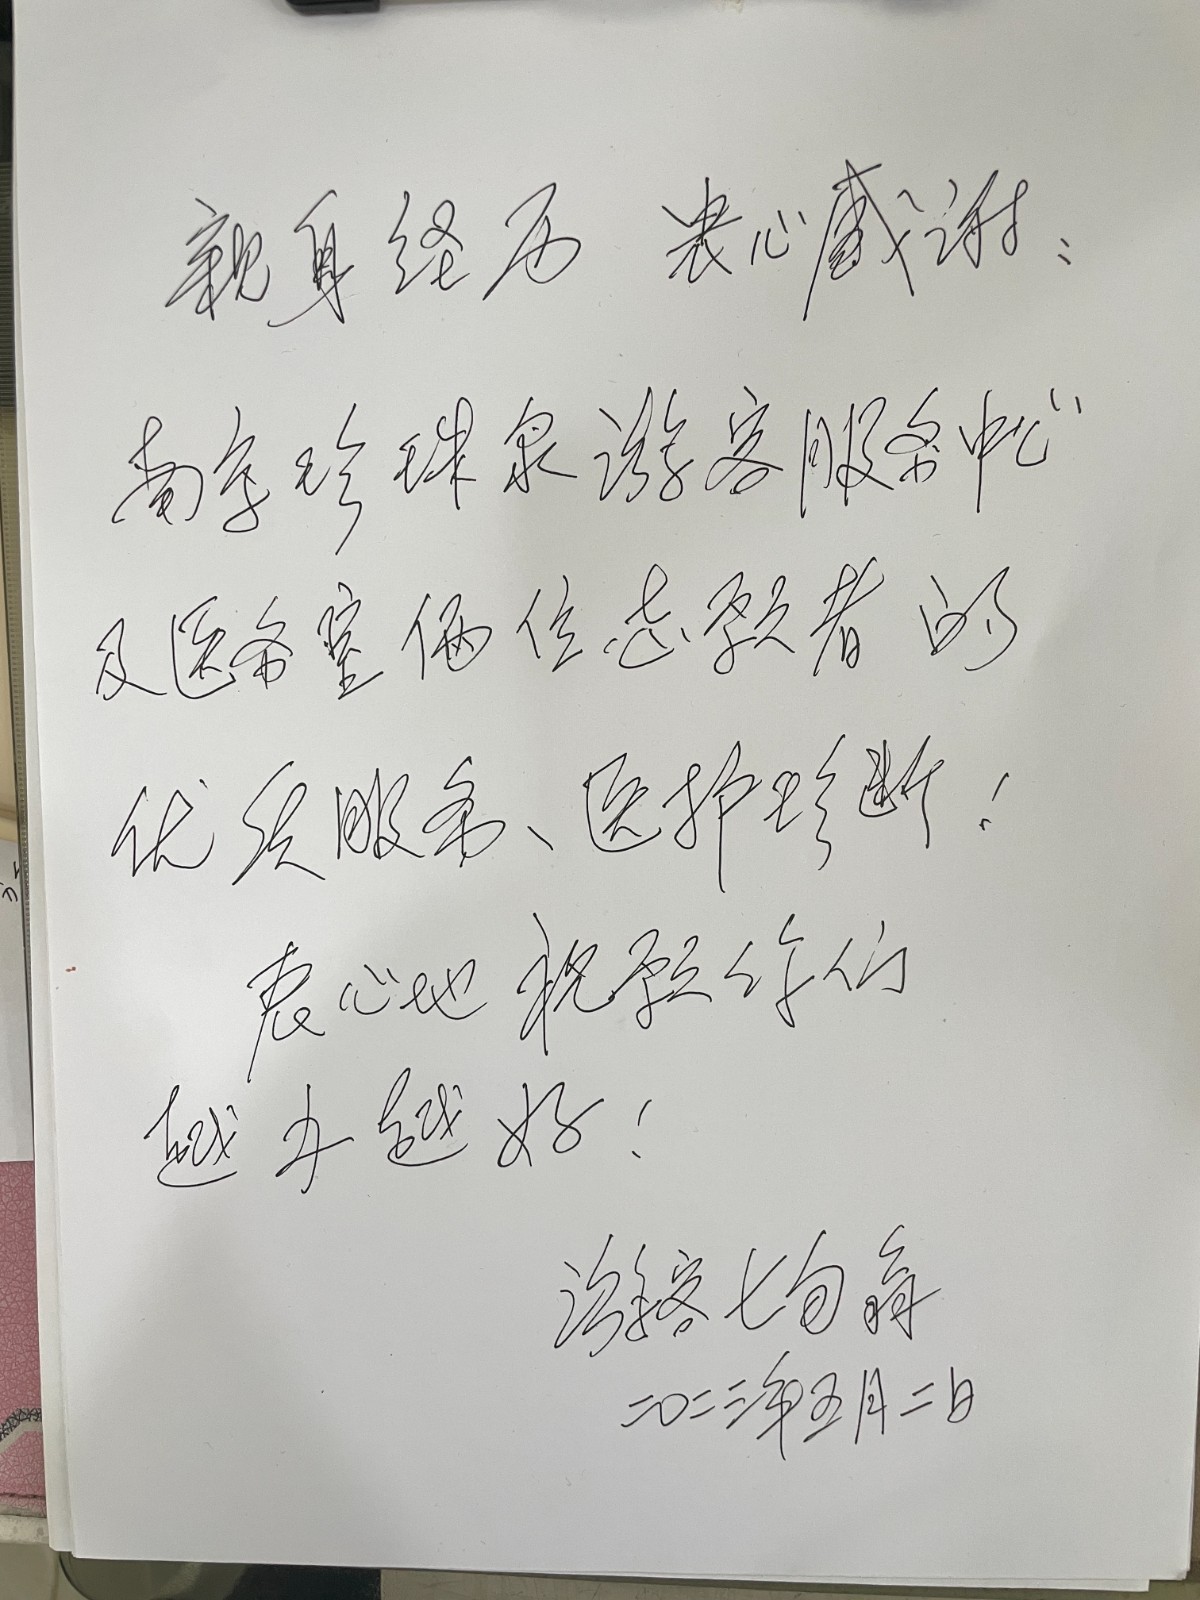 亲身经历 衷心感谢：
南京珍珠泉游客服务中心
及医务室俩位志愿者的
优质服务、医护珍断！
衷心地祝愿你们
越办越好！
游客七旬翁
二〇二三年五月二日